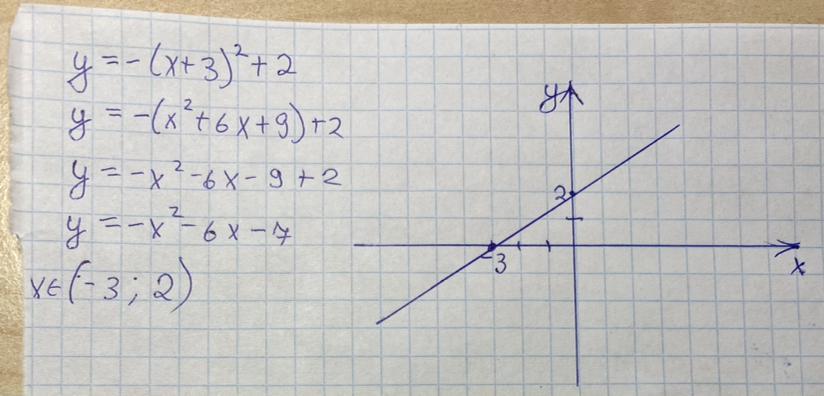 y = -(x+3)² + 2
y = -(x² + 6x + 9) + 2
y = -x² - 6x - 9 + 2
y = -x² - 6x - 7
x ∈ (-3; 2)
y
2
-3
x